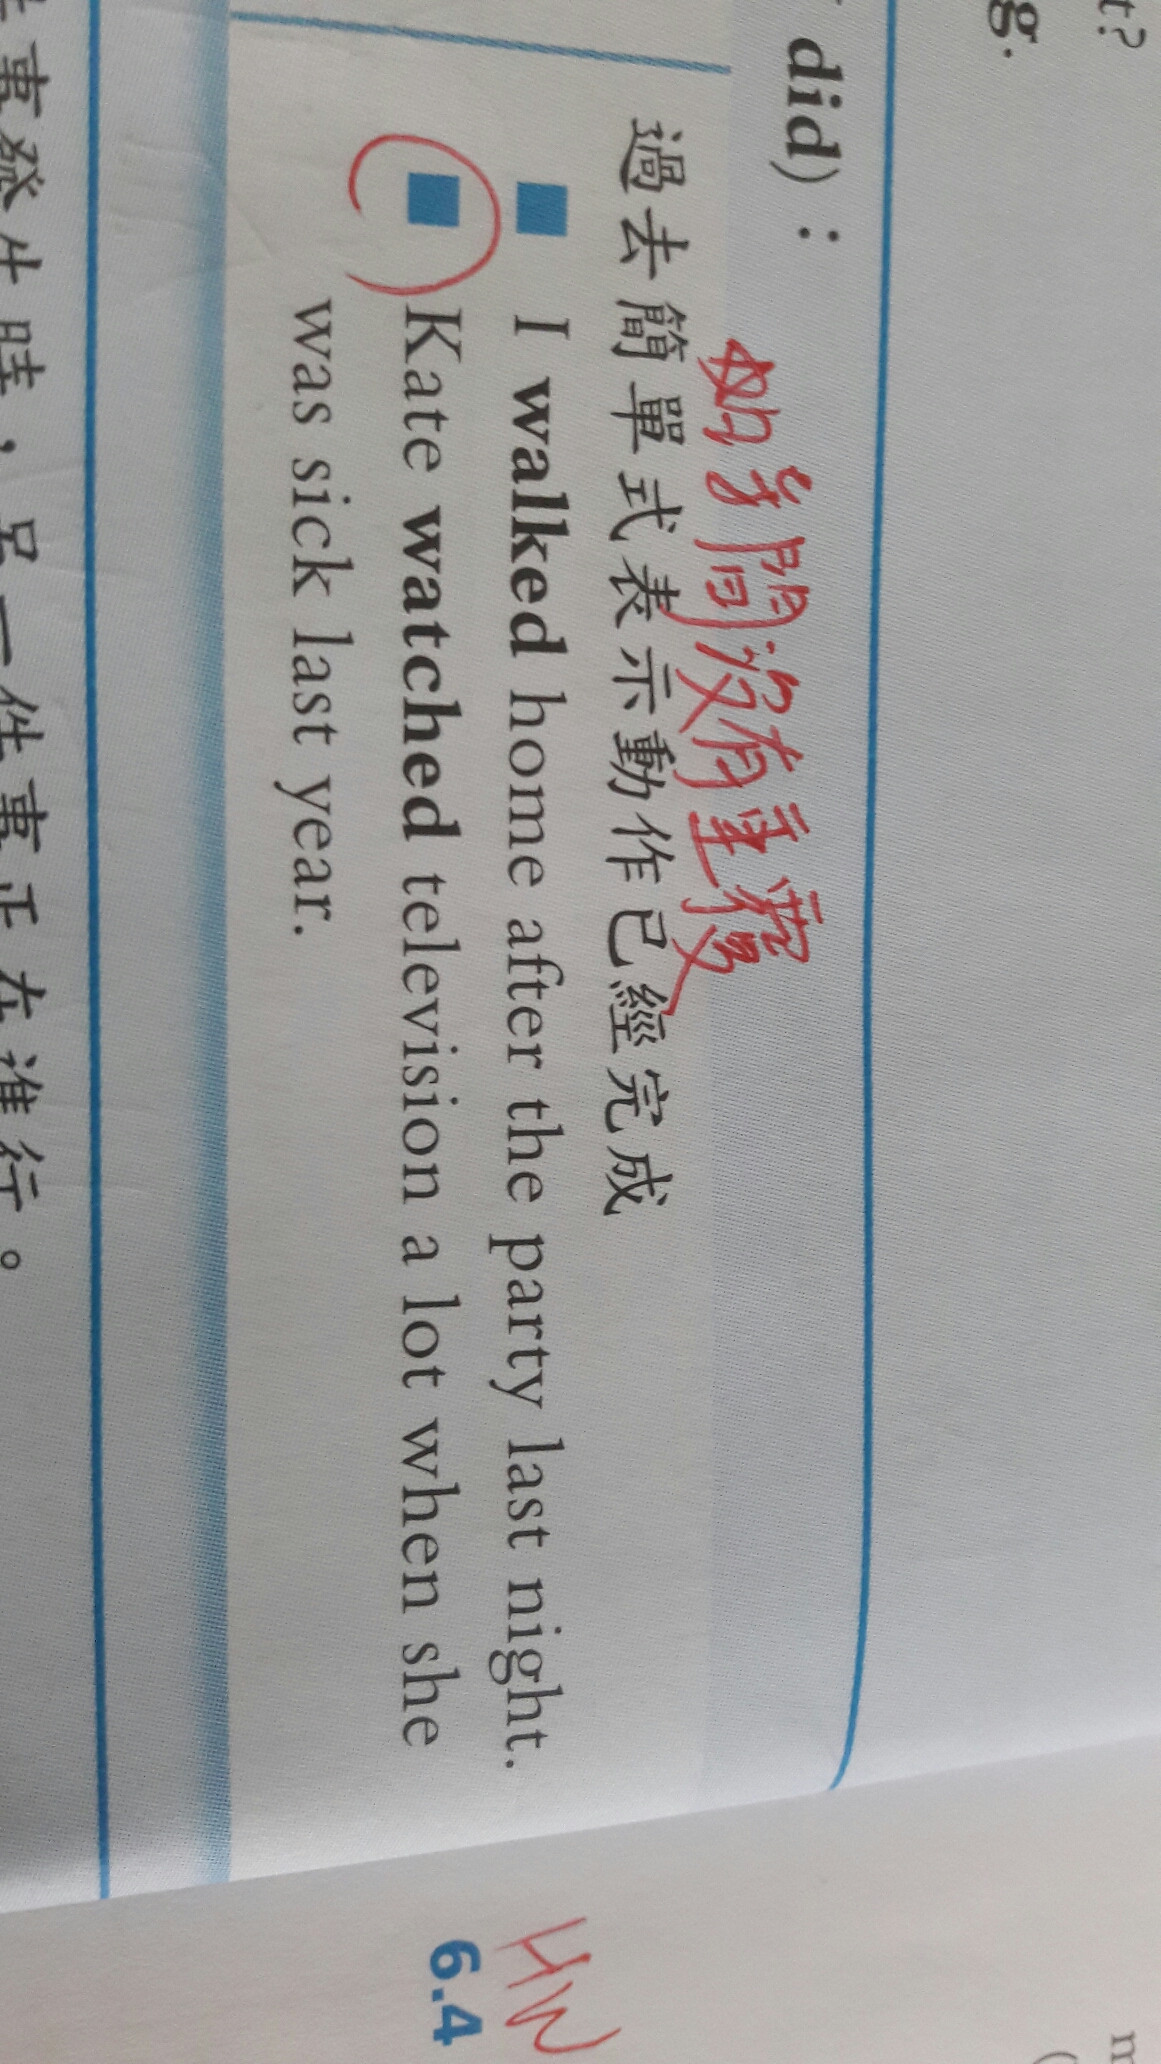 t?
g.
did) :
時間沒有重疊
過去簡單式表示動作已經完成
I walked home after the party last night.
Kate watched television a lot when she
was sick last year.
HW
6.4
事發生時,另一件事正在進行。